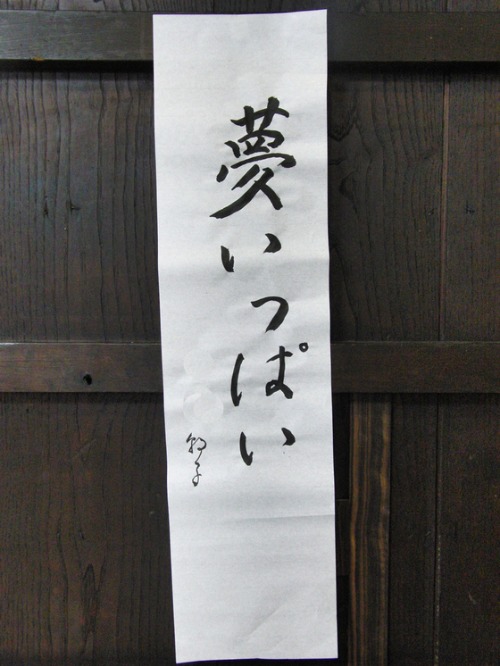 夢いっぱい